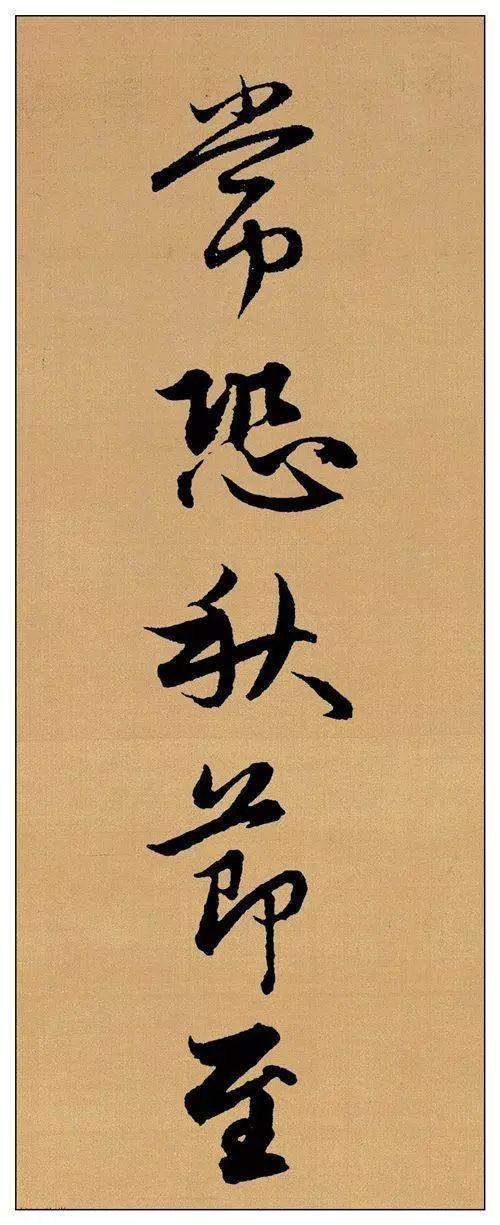 常恐秋節至